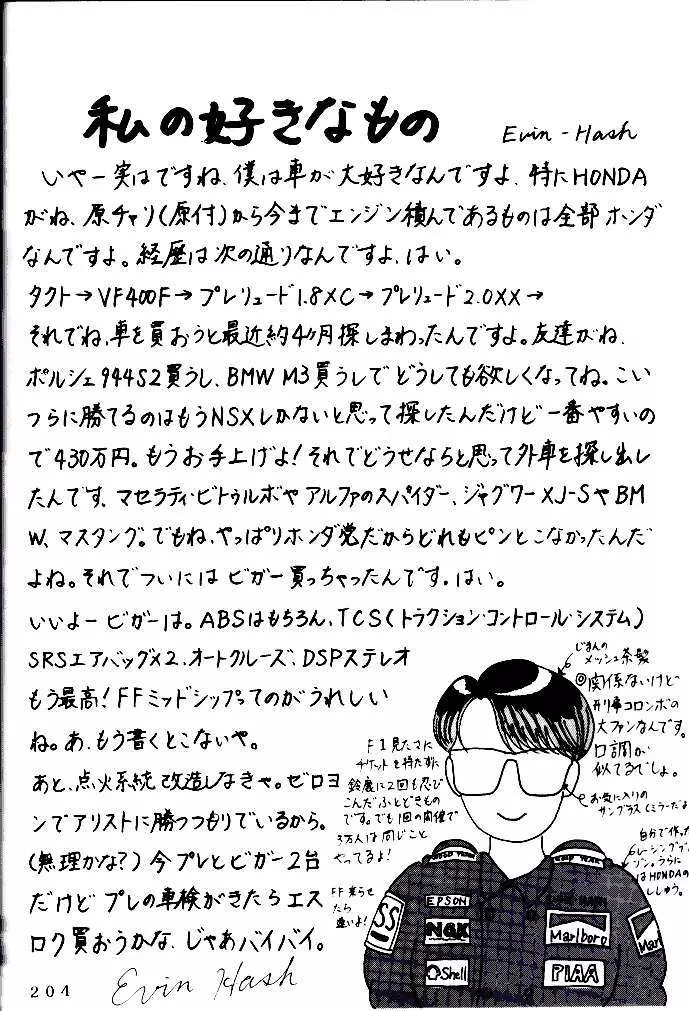 私の好きなもの
Evin - Hash
いやー実はですね、僕は車が大好きなんですよ、特にHONDA
がね、原チャリ(原付)から今までエンジン積んであるものは全部ホンダ
なんですよ。経歴は次の通りなんですよ、はい。
タクト→VF400F→プレリュード1.8XC→プレリュード2.0XX→
それでね、車を買おうと最近約4ヶ月探しまわったんですよ。友達がね、
ポルシェ944S2買うし、BMW M3買うしでどうしても欲しくなってね。こい
つらに勝てるのはもうNSXしかないと思って探したんだけど一番やすいの
で430万円。もうお手上げよ!それでどうせならと思って外車を探し出し
たんです、マセラティ・ビトゥルボやアルファのスパイダー、ジャグワーXJ-SやBM
W、マスタング。でもね、やっぱりホンダ党だからどれもピンとこなかったんだ
よね。それでついにはビガー買っちゃったんです。はい。
いいよービガーは。ABSはもちろん、TCS(トラクション・コントロール・システム)
SRSエアバッグ×2、オートクルーズ、DSPステレオ
もう最高!FFミッドシップってのがうれしい
ね。あ、もう書くとこないや。
あと、点火系統改造しなきゃ。ゼロヨ
ンでアリストに勝つつもりでいるから。
(無理かな?)今プレとビガー2台
だけど プレの車検がきたらエス
ロク買おうかな、じゃあバイバイ。
Evin Hash
204
じまんの
メッシュ茶髪
◎関係ないけど
刑事コロンボの
大ファンなんです。
口調が
似てるでしょ。
お気に入りの
サングラス(ミラーだよ
F1見たさに
チケットを持たずに
鈴鹿に2回も忍び
こんだふとどきもの
です。でも1回の開催で
3万人は同じこと
やってるよ!
自分で作った
レーシングブ
ゾン。うらに
はHONDAの
ししゅう。
FF 乗らせ
たら
速いよ!
EPSON
NGK
Shell
Marlboro
PIAA